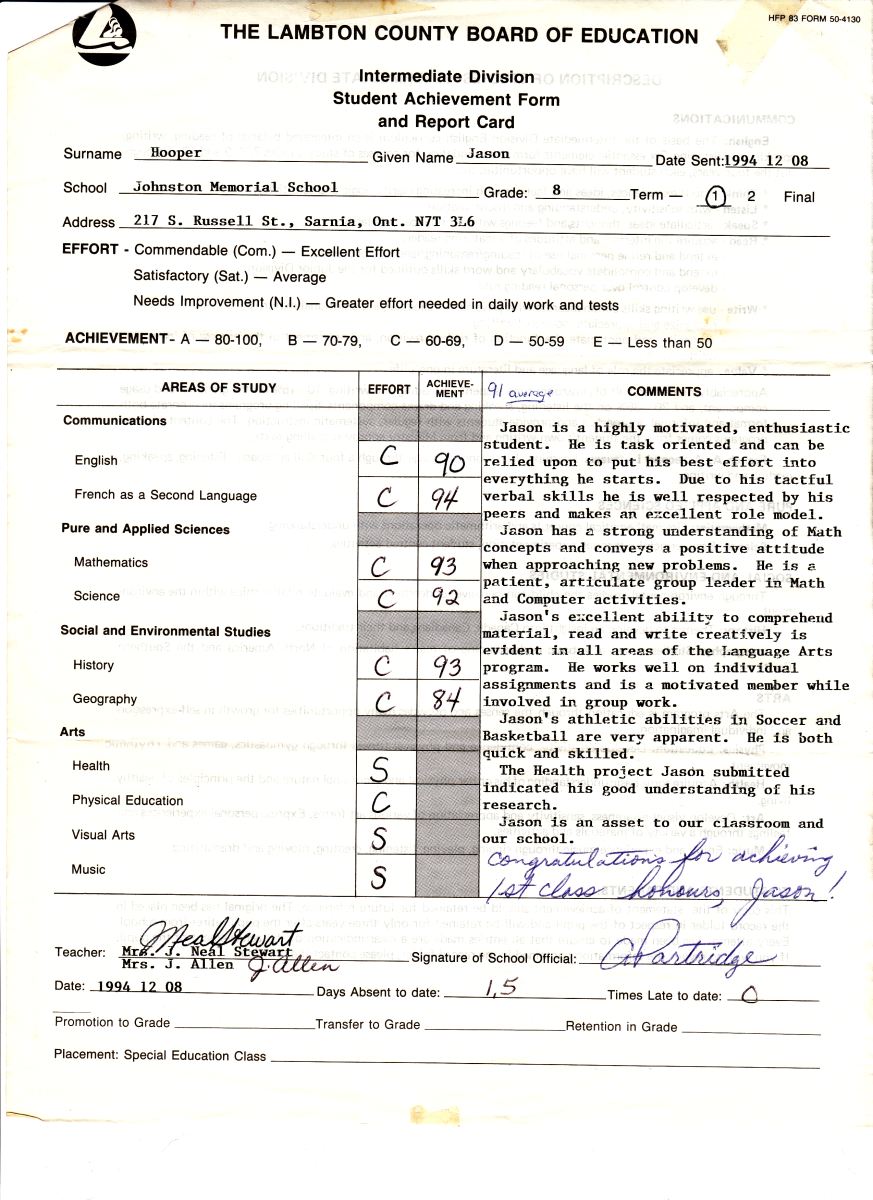 HFP 83 FORM 50-4130
THE LAMBTON COUNTY BOARD OF EDUCATION
Intermediate Division
Student Achievement Form
and Report Card
Surname Hooper Given Name Jason Date Sent: 1994 12 08
School Johnston Memorial School Grade: 8 Term — 1 2 Final
Address 217 S. Russell St., Sarnia, Ont. N7T 3L6
EFFORT - Commendable (Com.) — Excellent Effort
Satisfactory (Sat.) — Average
Needs Improvement (N.I.) — Greater effort needed in daily work and tests
ACHIEVEMENT - A — 80-100, B — 70-79, C — 60-69, D — 50-59 E — Less than 50
AREAS OF STUDY EFFORT ACHIEVE-MENT 91 average COMMENTS
Communications
English C 90
French as a Second Language C 94
Pure and Applied Sciences
Mathematics C 93
Science C 92
Social and Environmental Studies
History C 93
Geography C 84
Arts
Health S
Physical Education C
Visual Arts S
Music S
Jason is a highly motivated, enthusiastic
student. He is task oriented and can be
relied upon to put his best effort into
everything he starts. Due to his tactful
verbal skills he is well respected by his
peers and makes an excellent role model.
Jason has a strong understanding of Math
concepts and conveys a positive attitude
when approaching new problems. He is a
patient, articulate group leader in Math
and Computer activities.
Jason's excellent ability to comprehend
material, read and write creatively is
evident in all areas of the Language Arts
program. He works well on individual
assignments and is a motivated member while
involved in group work.
Jason's athletic abilities in Soccer and
Basketball are very apparent. He is both
quick and skilled.
The Health project Jason submitted
indicated his good understanding of his
research.
Jason is an asset to our classroom and
our school.
Congratulations for achieving
1st class honours, Jason!
Neal Stewart
Teacher: Mrs. J. Neal Stewart Signature of School Official: A Partridge
Mrs. J. Allen J. Allen
Date: 1994 12 08 Days Absent to date: 1.5 Times Late to date: 0
Promotion to Grade Transfer to Grade Retention in Grade
Placement: Special Education Class